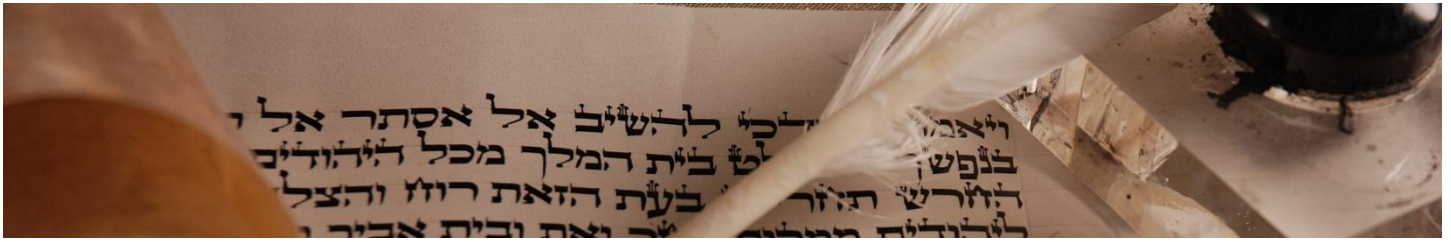 ויאמ דכי להשיב אל אסתר אל
בנפש לט בית המלך מכל היהודים
החרש תחר בעת הזאת רוח והצל
ליהודים ואת ובית אביך